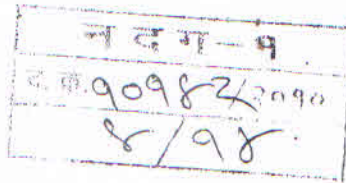 न द न - १
द. क्र. १०९४२/२०१०
४/१४